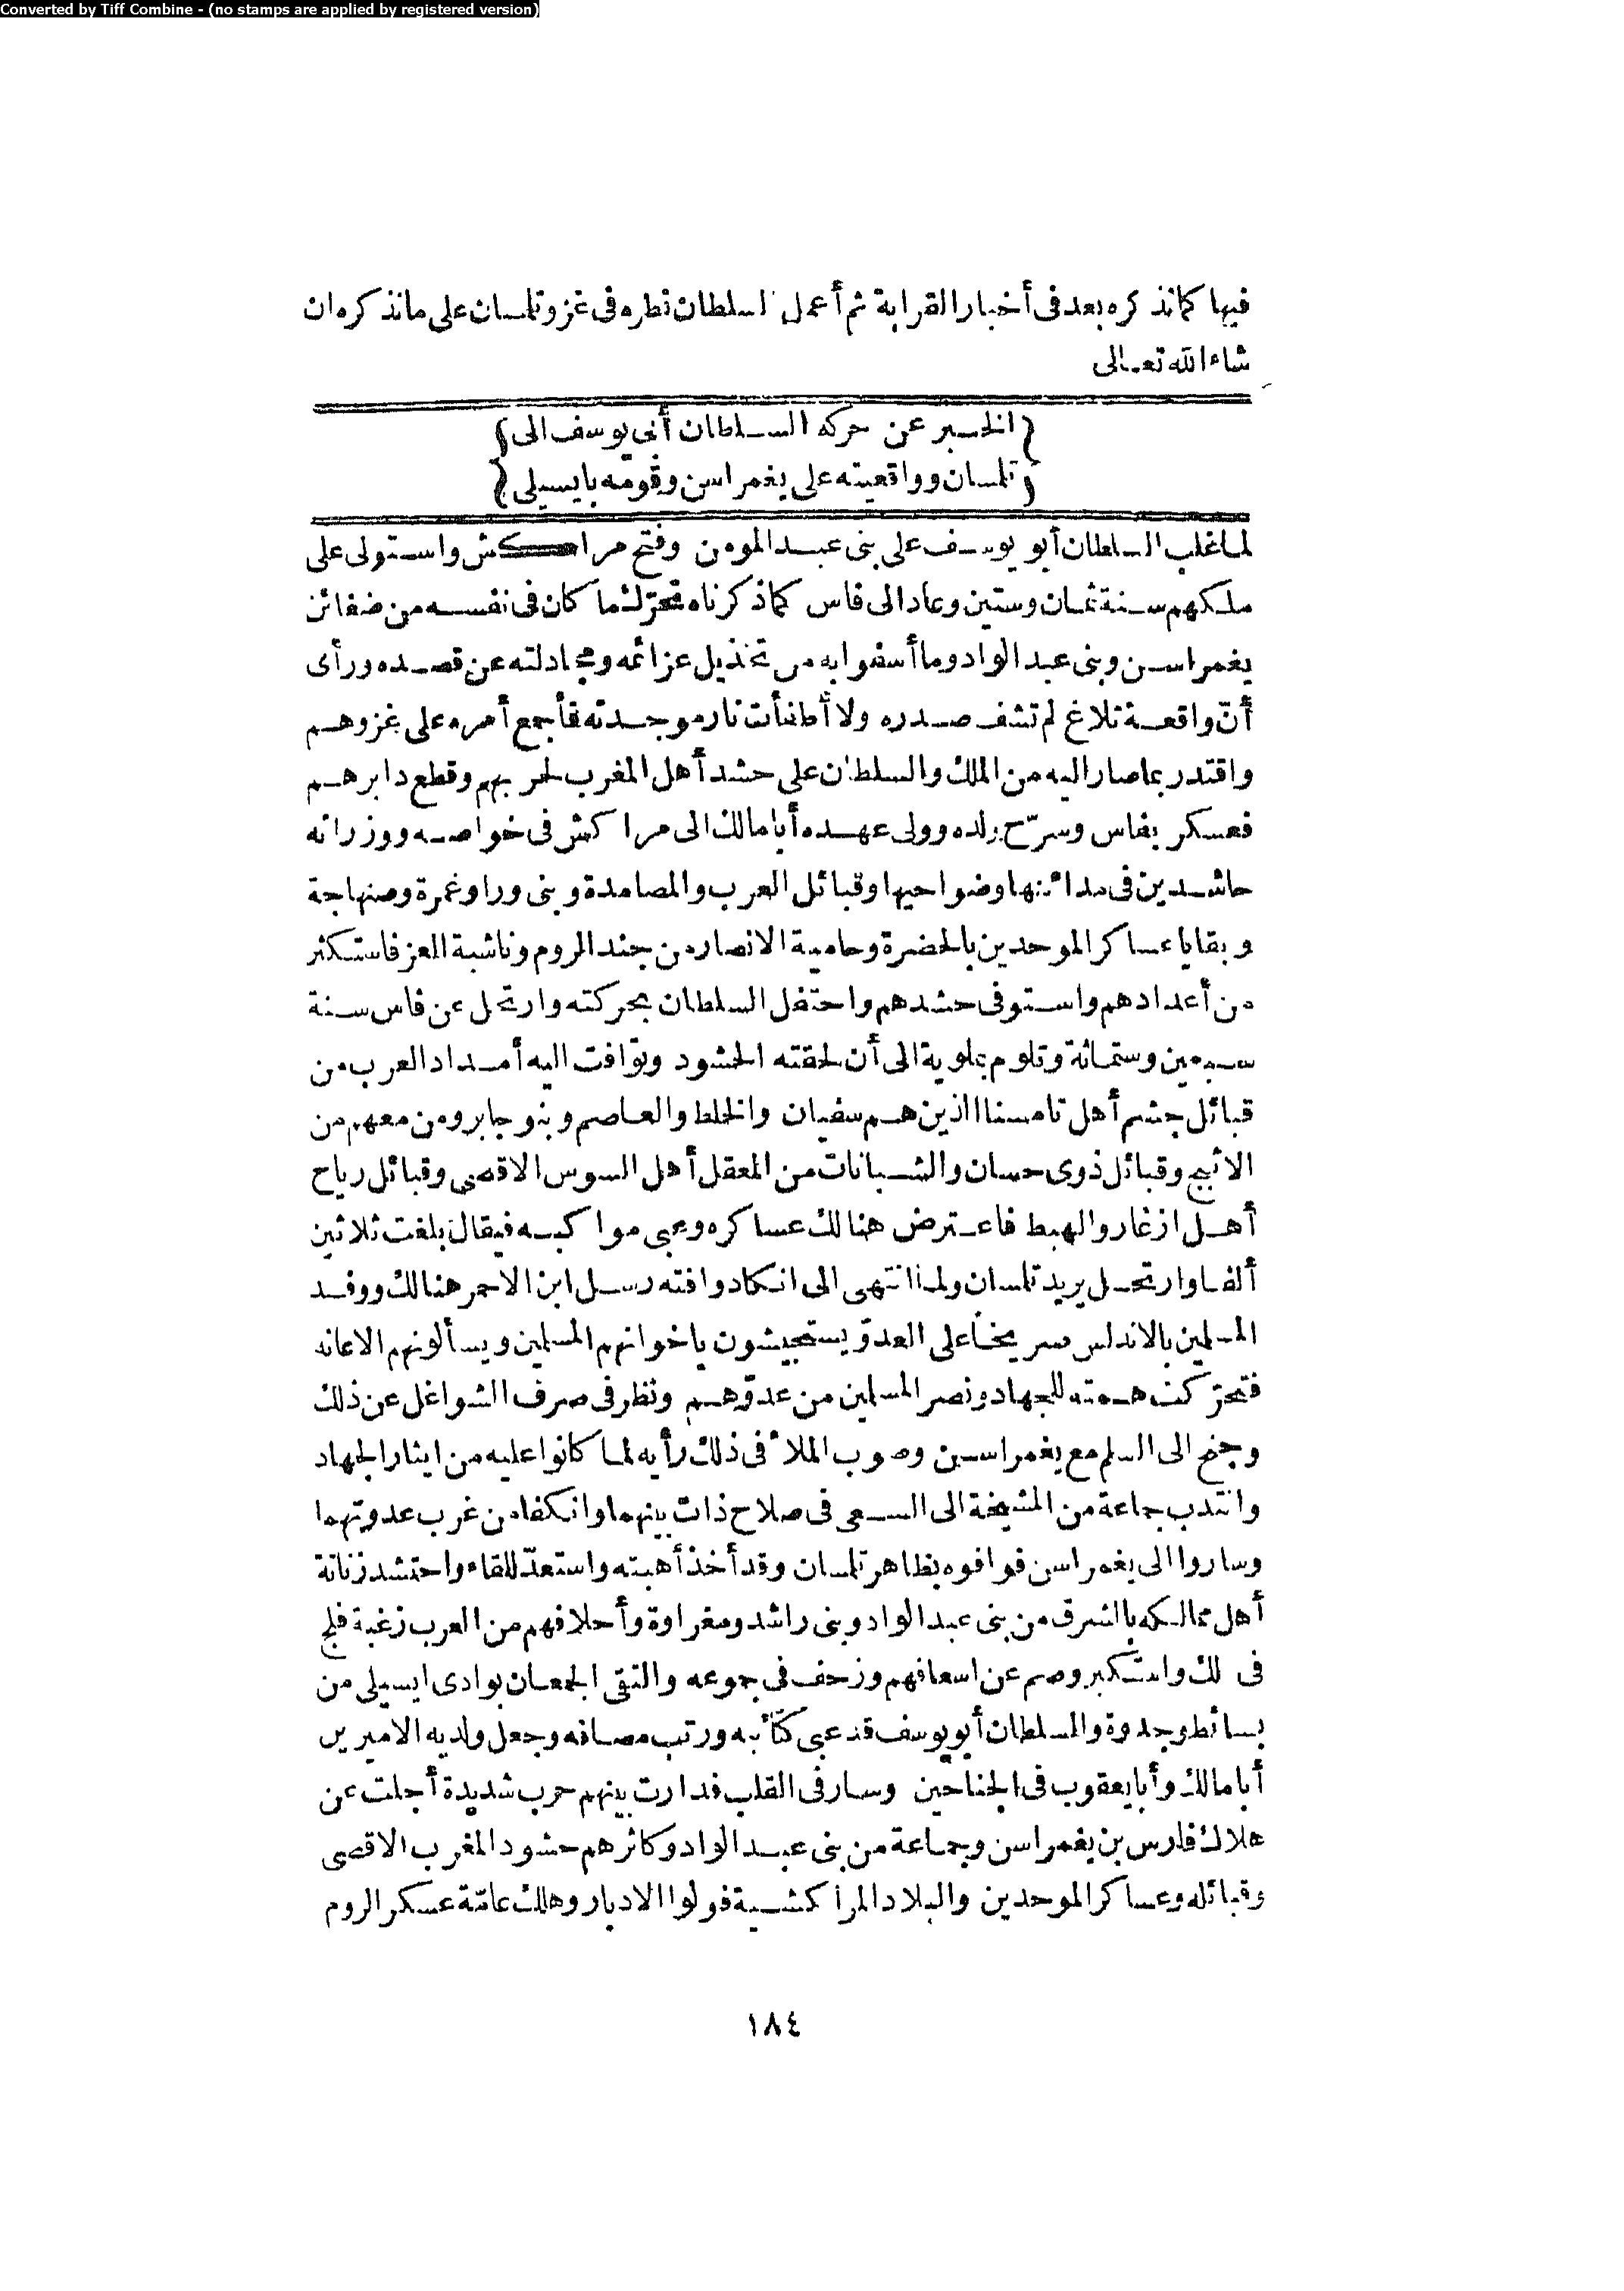 Converted by Tiff Combine - (no stamps are applied by registered version)
فيها كما نذكره بعد فى أخبار القرابة ثم أعمل السلطان نظره فى غزو تلمسان على ما نذكره ان
شاء الله تعالى
{الخبر عن حركة السلطان أبى يوسف الى}
{تلمسان وواقعيته على يغمراسن وقومه بايسيلى}
لما غلب السلطان أبو يوسف على بنى عبد المومن وفتح مراكش واستولى على
ملكهم سنة ثمان وستين وعاد الى فاس كما ذكرناه تحرّك ما كان فى نفسه من ضغائن
يغمراسن وبنى عبد الواد وما أسفوا به من تخذيل عزائمه ومجادلته عن قصده ورأى
أنّ واقعة تلاغ لم تشف صدره ولا أطفأت نار موجدته فأجمع أمره على غزوهم
واقتدر بما صار اليه من الملك والسلطان على حشد أهل المغرب لحربهم وقطع دابرهم
فعسكر بفاس وسرّح ولده وولى عهده أبا مالك الى مراكش فى خواصه ووزرائه
حاشدين فى مدائنها وضواحيها وقبائل العرب والمصامدة وبنى ورا وغمرة وصنهاجة
وبقايا عساكر الموحدين بالحضرة وحامية الانصار من جند الروم وناشبة الغز فاستكثر
من أعدادهم واستوفى حشدهم واحتفل السلطان بحركته وارتحل عن فاس سنة
سبعين وستمائة وتلوم بملوية الى أن لحقته الحشود وتوافت اليه أمداد العرب من
قبائل جشم أهل تامسنا الذين هم سفيان والخلط والعاصم وبنو جابر ومن معهم من
الاثبج وقبائل ذوى حسان والشبانات من المعقل أهل السوس الاقصى وقبائل رياح
أهل ازغار والهبط فاعترض هنالك عساكره وعبى مواكبه فيقال بلغت ثلاثين
ألفا وارتحل يريد تلمسان ولما انتهى الى انكاد وافته رسل ابن الاحمر هنالك ووفد
المسلمين بالاندلس صريخا على العدوّ يستجيشون باخوانهم المسلمين ويسألونهم الاعانه
فتحرّكت همته للجهاد ونصر المسلمين من عدوّهم ونظر فى صرف الشواغل عن ذلك
وجنح الى السلم مع يغمراسن وصوب الملأ فى ذلك رأيه لما كانوا عليه من ايثار الجهاد
وانتدب جماعة من المشيخة الى السعى فى صلاح ذات بينهما وانكفا من غرب عدوتهما
وساروا الى يغمراسن فوافوه بظاهر تلمسان وقد أخذ أهبته واستعدّ للقاء واحتشد زناتة
أهل ممالكه بالشرق من بنى عبد الواد وبنى راشد ومغراوة وأحلافهم من العرب زغبة فلج
فى لك واستكبر وصم عن اسعافهم وزحف فى جموعه والتقى الجمعان بوادى ايسيلى من
بسائط وجدة والسلطان أبو يوسف قد عبى كتائبه ورتب مصافه وجعل ولديه الاميرين
أبا مالك وأبا يعقوب فى الجناحين وسار فى القلب فدارت بينهم حرب شديدة أجلت عن
هلاك فارس بن يغمراسن وجماعة من بنى عبد الواد وكاثرهم حشود المغرب الاقصى
وقبائله وعساكر الموحدين والبلاد المراكشية فولوا الادبار وهلك عامّة عسكر الروم
١٨٤